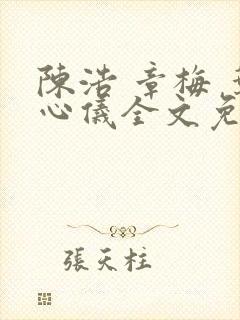 陳浩 章梅
心儀全文免
張天柱